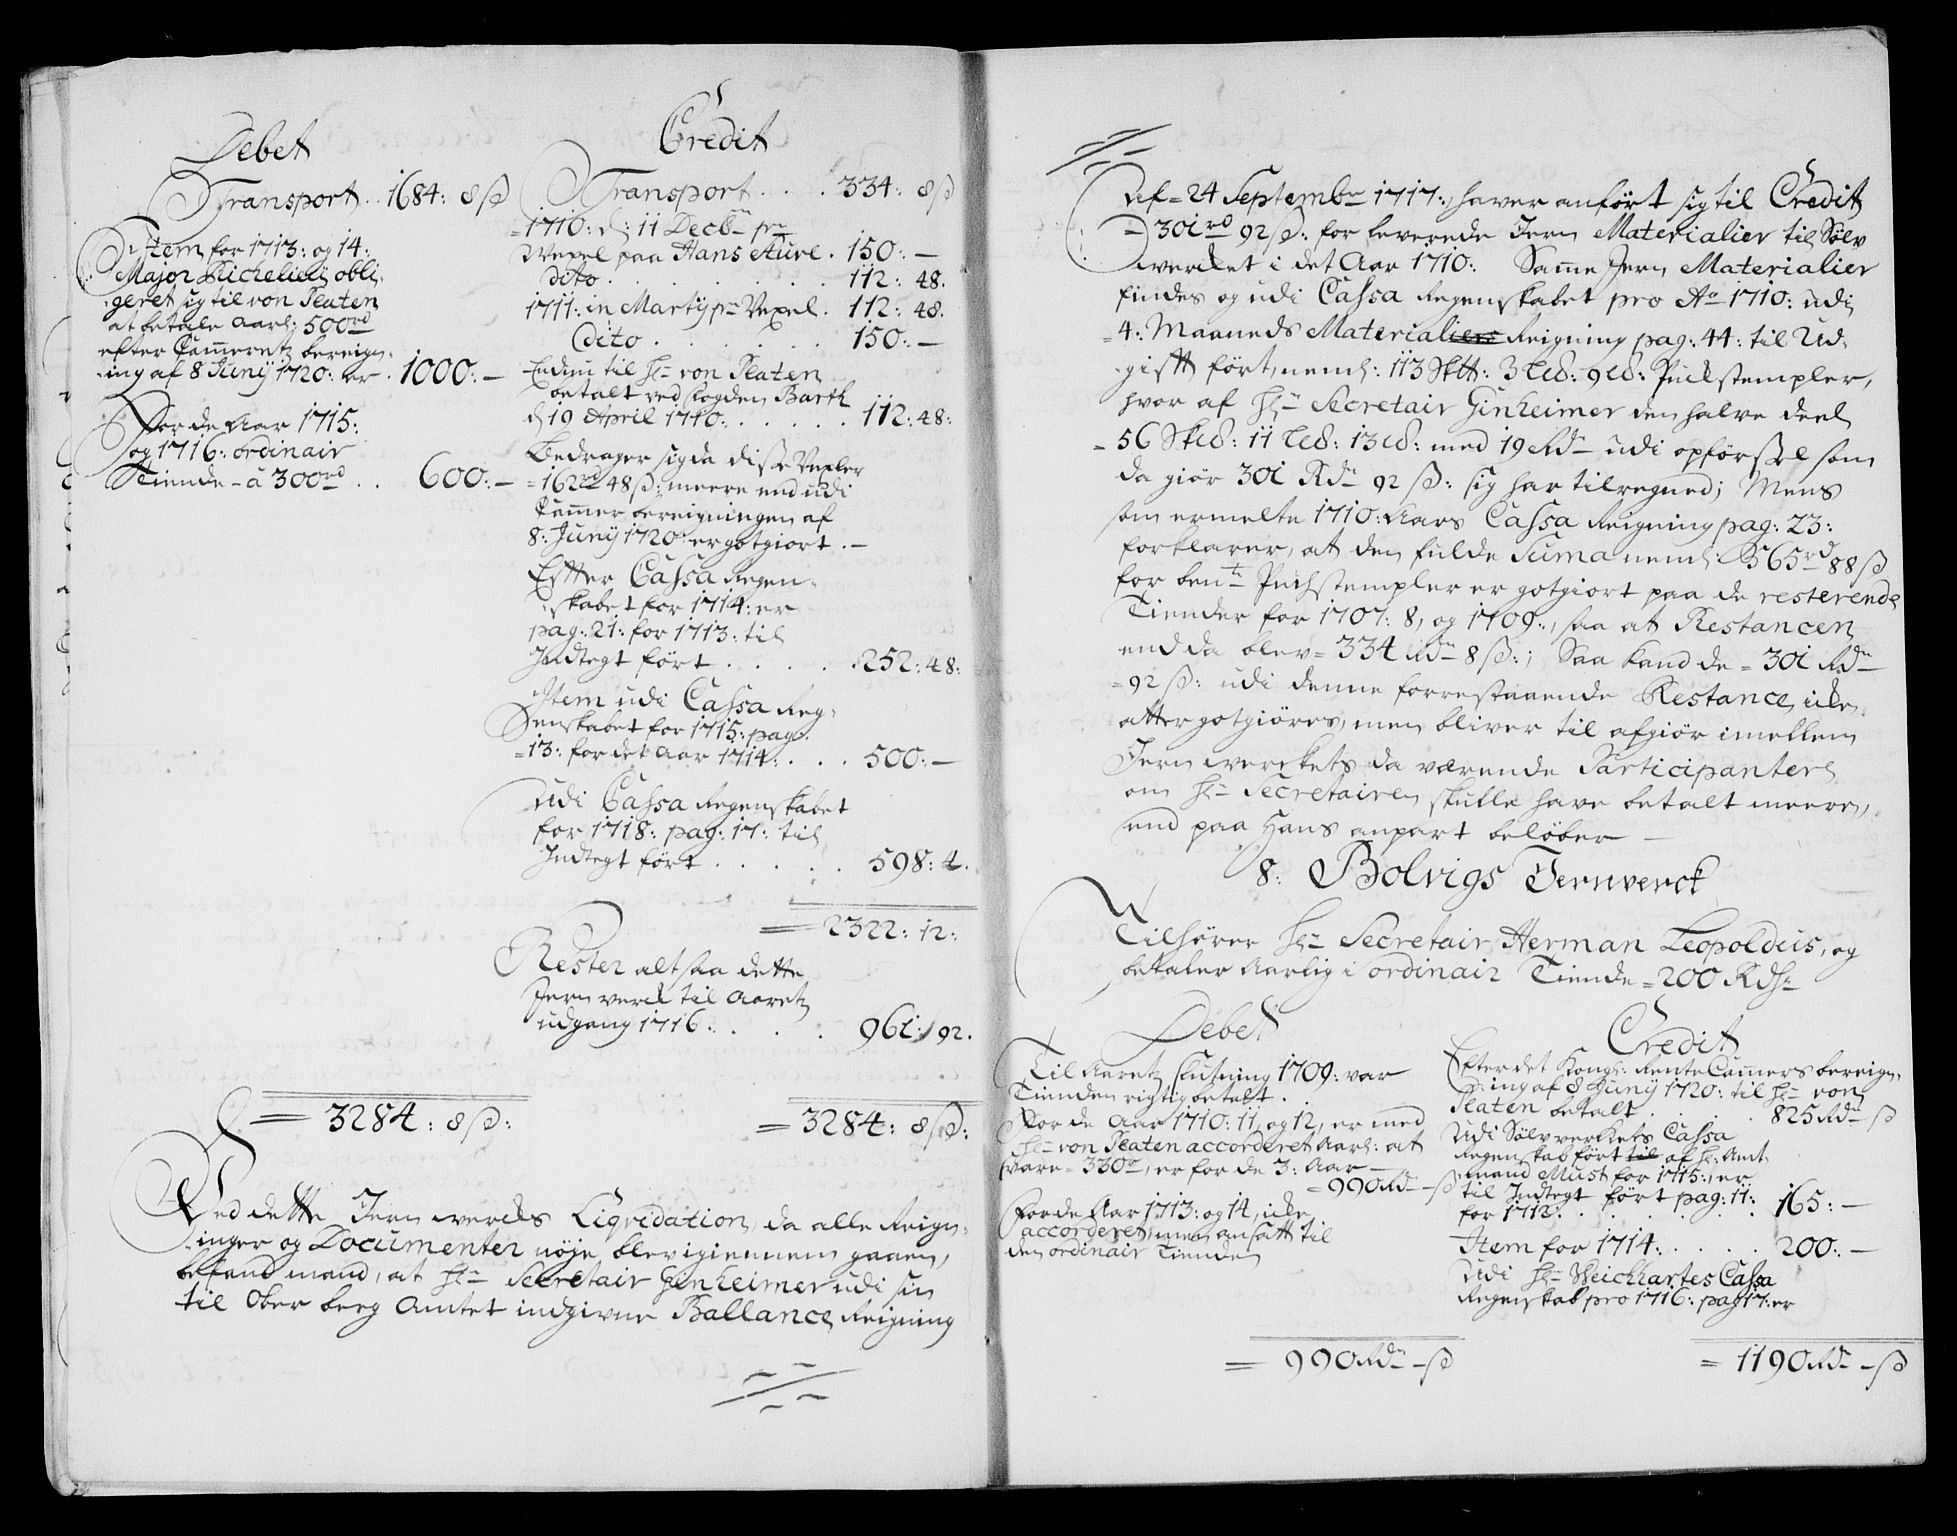 Debet
Transport . . 1684: 8 ß
Item for 1713: og 14:
Major Richelieu obli-
geret sig til von Platen
at betale Aarl: 500 rd
efter Cammeretz bereign-
ing af 8 Junij 1720: er . 1000: —
For de Aar 1715:
og 1716: ordinair
Tiende - â 300 rd . . 600: —
= 3284: 8 ß:
Credit
Transport . . . 334: 8 ß
= 1710: d: 11 Decbr pr
Wexel paa Hans Aure . 150: —
dito . . . . . . . 112: 48.
1711: in Martij pr Vexel . 112: 48.
dito . . . . . . 150: —
Endnu til Hr von Platen
betalt ved fogden Barth
d 19 April 1710: . . . . . 112: 48:
Bedrager sig da disse Vexler
= 162 rd 48 ß: meere end udi
Cammer bereigningen af
8: Junij 1720: er gotgiort . —
Effter Cassa Regen-
skabet for 1714: er
pag: 21: for 1713: til
Indtegt ført . . . . . 252: 48:
Item udi Cassa Reg-
enskabet for 1715: pag:
= 13: for det Aar 1714: . . . 500: —
Udi Cassa Regenskabet
for 1718: pag: 17: til
Indtegt ført . . . . . 598: 4.
= 2322: 12:
Rester altsaa dette
Jernverck til Aaretz
udgang 1716: . . . . 961: 92.
= 3284: 8 ß:
Ved dette Jernwercks Liqvidation, da alle Reign-
inger og Documenter nøje blev igiennem gaaen,
befant mand, at Hr Secretair Ginheimer udi sin
til Ober berg Amtet indgivne Ballance Reigning
Af = 24 Septembr 1717:, haver anført sig til Credit
= 301 rd 92 ß: for leverede Jern Materialier til Sølv
wercket i det Aar 1710: Samme Jern Materialier
findes og udi Cassa Regenskabet pro Ao 1710: udi
= 4: Maaneds Materialiers Reigning pag: 44: til Ud-
gifft ført, neml: 113 Sktt: 3 L℔: 9 ℔: Puckstempler,
hvor af Hr Secretair Ginheimer den halve deel
= 56 Sk℔: 11 L℔: 13 ℔: med 19 Rdr udi opførsel som
da giør 301 Rdr 92 ß: sig har tilregned; Mens
som ermelte 1710: Aars Cassa Reigning pag: 23:
forklarer, at den fulde Suma neml: 565 rd 88 ß
for bente Puchstempler er gotgiort paa de resterende
Tiender for 1707: 8, og 1709:, saa at Restancen
end da blev = 334 Rdr 8 ß:; Saa kand de = 301 Rdr
= 92 ß: udi denne forrestaaende Restance, icke
atter gotgiøres, men bliver til afgiør imellem
Jernwerckets da værende Participantere
om Hr Secretairen skulle have betalt meere,
end paa Hans anpart beløber —
8: Bolvigs Jernverck
Tilhører Hr Secretair Herman Leopoldus, og
betaler Aarlig i ordinair Tiende = 200 Rdr
Debet
Til Aaretz slutning 1709: var
Tienden rigtig betalt .
For de Aar 1710: 11, og 12, er med
Hr von Platen accorderet Aarl: at
svare = 330 r, er for de 3: Aar —
= 990 Rdr - ß
For de Aar 1713: og 14, icke
accorderet, men ansatt til
den ordinair Tienden
= 990 Rdr - ß
Credit
Efter det Kongl: Rente Camers bereign-
ing af 8 Junij 1720: til Hr von
Platen betalt . . . 825 Rdr - ß
Udi Sølvverkets Cassa
Regenskab ført til af Hr Amt-
mand Must for 1715:, er
til Indtegt ført pag: 11:
for 1712: . . . . . . 165: —
Item for 1714: . . . . . 200: —
Udi Hr Weichhartes Cassa
Regenskab pro 1716: pag 17: er
= 1190 Rdr - ß